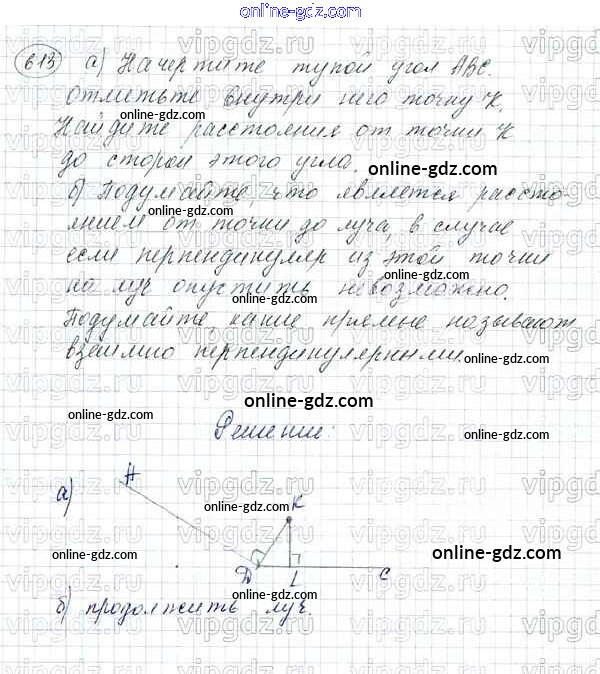 online-gdz.com
613 а) Начертите тупой угол АВС.
отметьте внутри него точку К.
online-gdz.com
Найдите расстояния от точки К
до сторон этого угла.
online-gdz.com
б) Подумайте, что является рассто-
online-gdz.com
янием от точки до луча, в случае
если перпендикуляр из этой точки
на луч опустить невозможно.
online-gdz.com
Подумайте, какие прямые называют
взаимно перпендикулярными.
online-gdz.com
online-gdz.com
online-gdz.com
Решение:
online-gdz.com
а)
К
online-gdz.com
online-gdz.com
online-gdz.com
L
C
б) продолжить луч.
online-gdz.com
online-gdz.com
vipgdz.ru